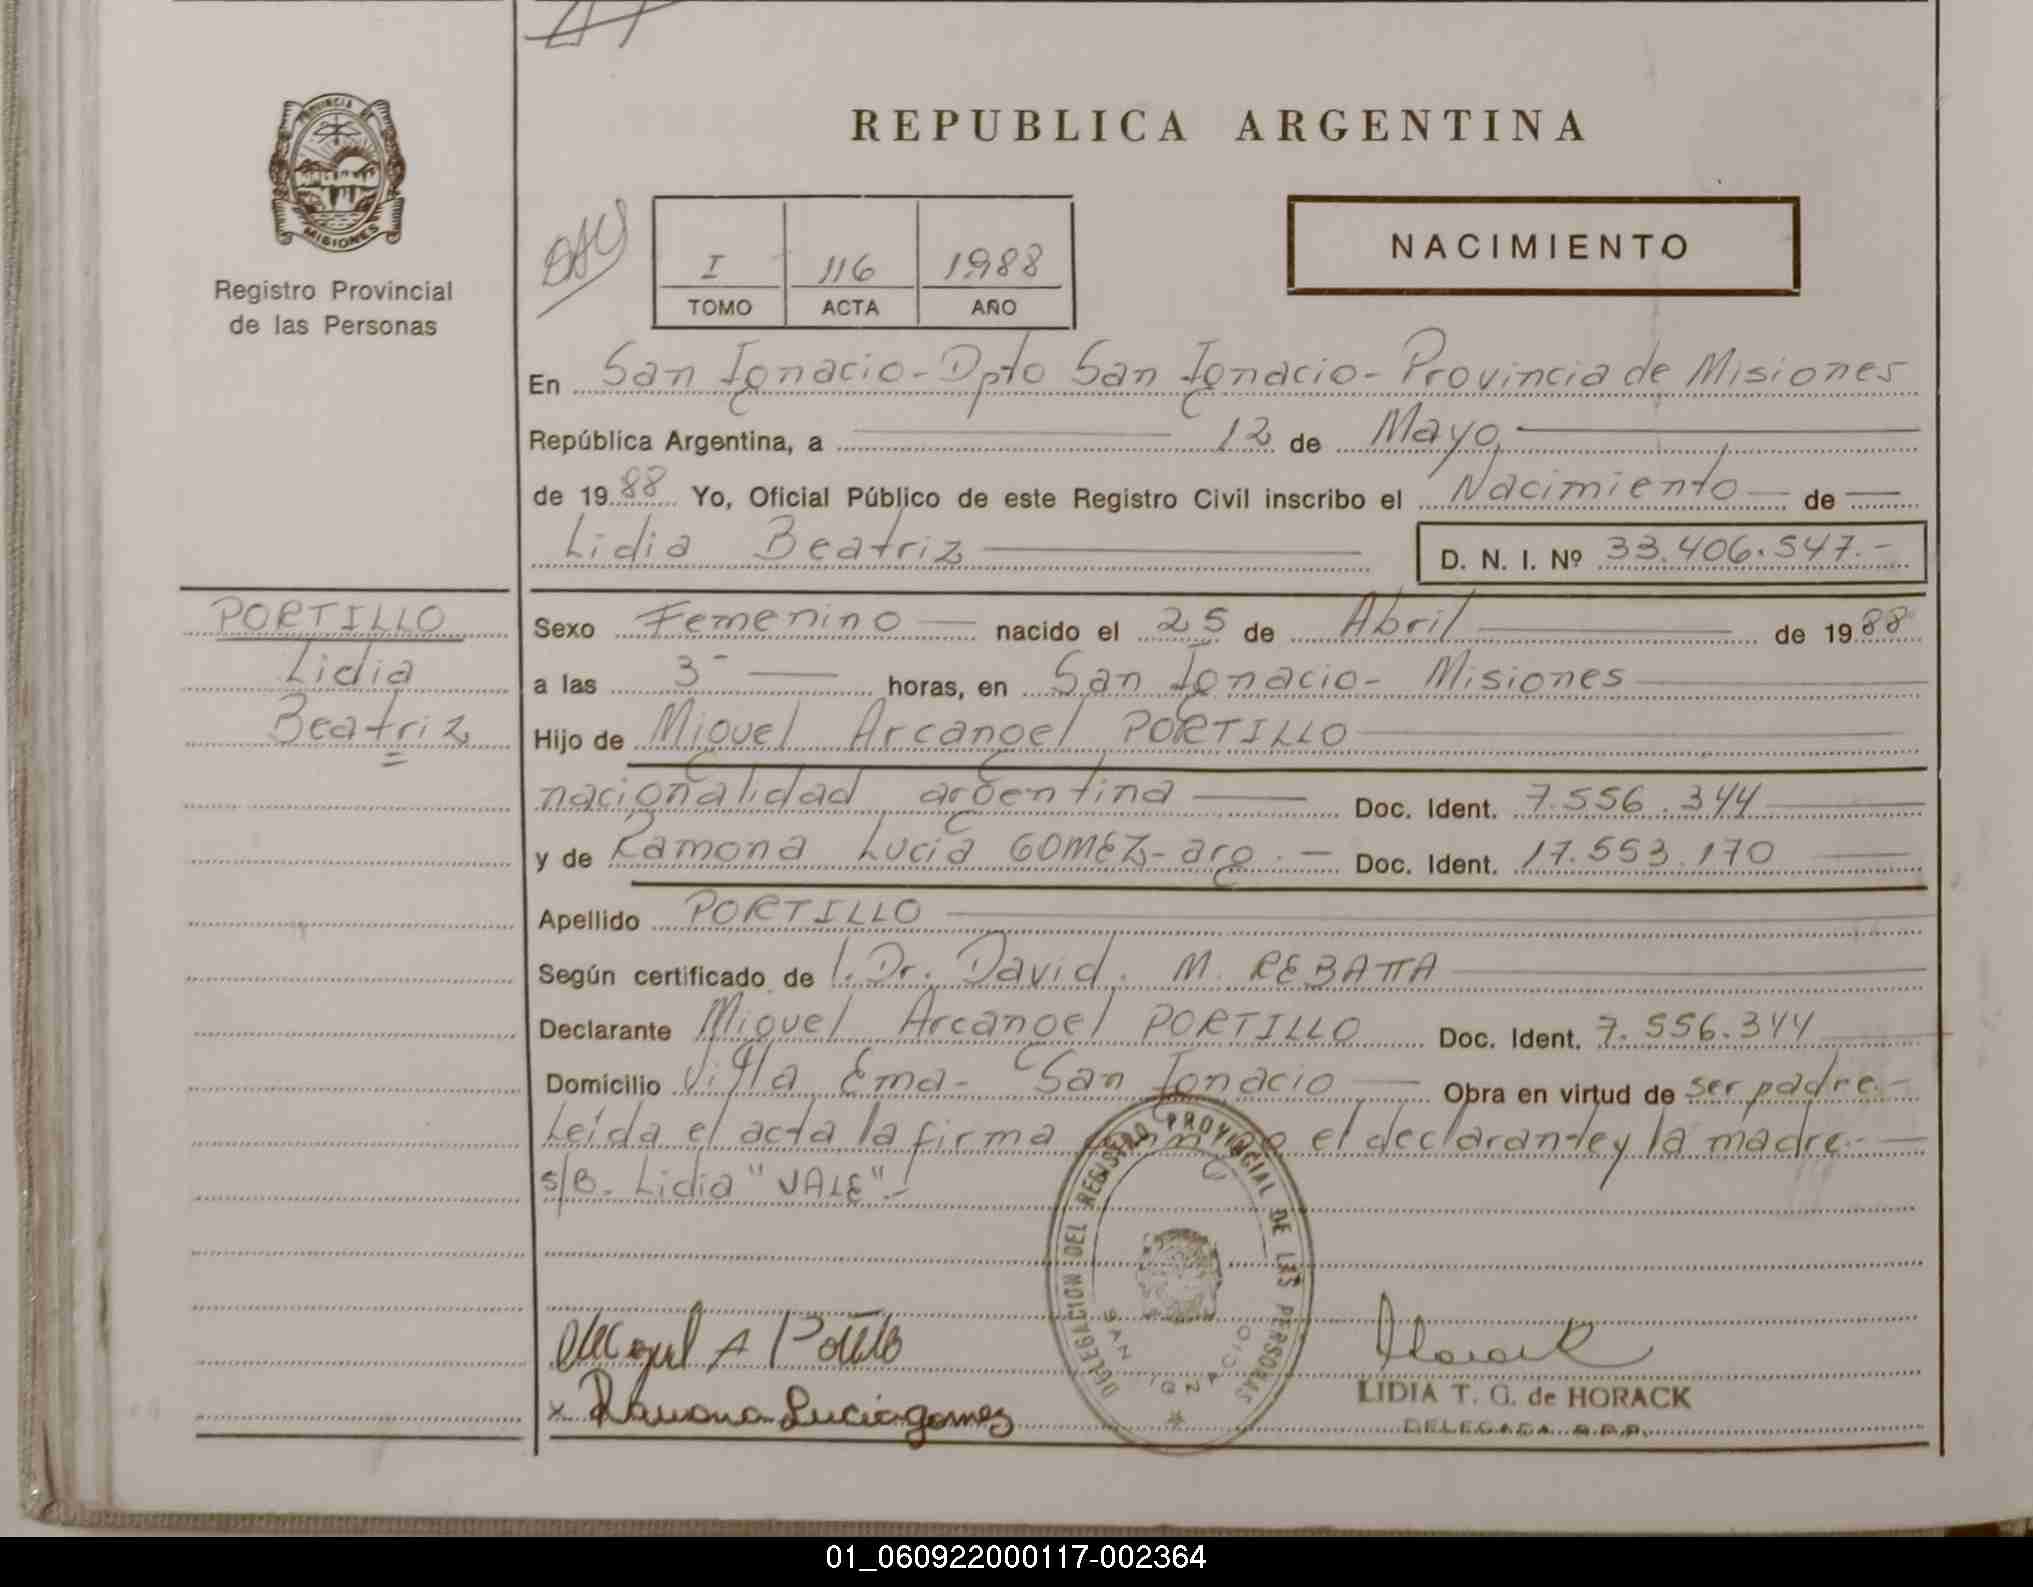 PROVINCIA DE
MISIONES
Registro Provincial
de las Personas
REPUBLICA ARGENTINA
I 116 1988
TOMO ACTA AÑO
NACIMIENTO
En San Ignacio - Dpto San Ignacio - Provincia de Misiones
República Argentina, a 12 de Mayo
de 1988 Yo, Oficial Público de este Registro Civil inscribo el Nacimiento de
Lidia Beatriz D. N. I. Nº 33.406.547.-
PORTILLO
Lidia
Beatriz
Sexo Femenino nacido el 25 de Abril de 1988
a las 3- horas, en San Ignacio - Misiones
Hijo de Miguel Arcangel PORTILLO
nacionalidad argentina Doc. Ident. 7.556.344
y de Ramona Lucia GOMEZ - arg. - Doc. Ident. 17.553.170
Apellido PORTILLO
Según certificado de l. Dr. David. M. REBATTA
Declarante Miguel Arcangel PORTILLO Doc. Ident. 7.556.344
Domicilio Villa Ema - San Ignacio Obra en virtud de ser padre.-
Leída el acta la firma conmigo el declarante y la madre.-
s/B. Lidia "VALE".-
DELEGACION DEL REGISTRO PROVINCIAL DE LAS PERSONAS
SAN IGNACIO
Miguel A Portillo
x Ramona Lucia gomez
Horack
LIDIA T. G. de HORACK
DELEGADA R.P.P.
01_060922000117-002364